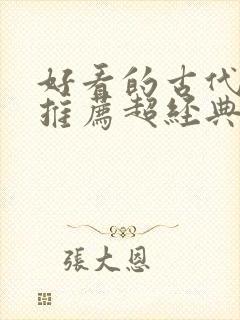 好看的古代
推薦超經典
張大恩